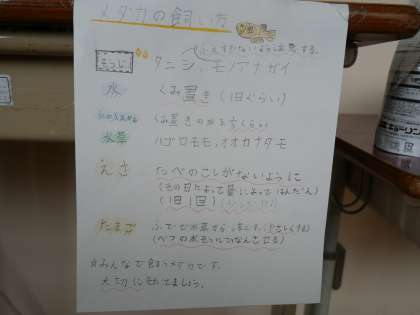 メダカの飼い方
ふえすぎないように注意する。
そうじ タニシ、モノアラガイ
水 くみ置き(1日ぐらい)
くみ置きの水を
水草 ハゴロモモ、オオカナダモ
えさ たべのこしがないように
(その日によって量によってはんだん)
(1日1回)
たまご
(べつの水そうに
☆みんなで飼うメダカです。
大切にそだてましょう。